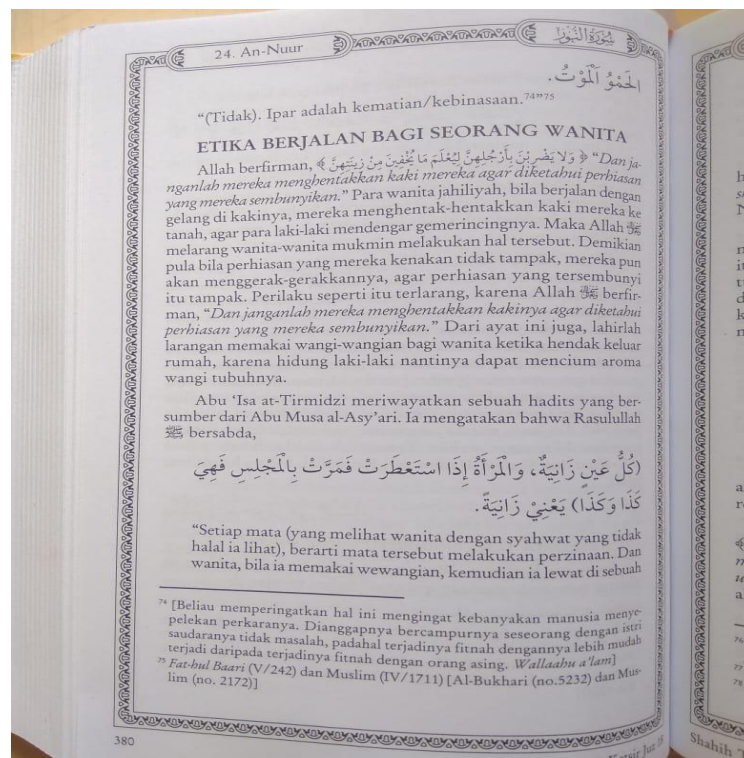 24. An-Nuur
سُوْرَةُ النُّوْرِ
الْحَمْوُ الْمَوْتُ.
“(Tidak). Ipar adalah kematian/kebinasaan.⁷⁴”⁷⁵
ETIKA BERJALAN BAGI SEORANG WANITA
Allah berfirman, ﴿ وَلَا يَضْرِبْنَ بِأَرْجُلِهِنَّ لِيُعْلَمَ مَا يُخْفِينَ مِنْ زِينَتِهِنَّ ﴾ “Dan ja-
nganlah mereka menghentakkan kaki mereka agar diketahui perhiasan
yang mereka sembunyikan.” Para wanita jahiliyah, bila berjalan dengan
gelang di kakinya, mereka menghentak-hentakkan kaki mereka ke
tanah, agar para laki-laki mendengar gemerincingnya. Maka Allah ﷻ
melarang wanita-wanita mukmin melakukan hal tersebut. Demikian
pula bila perhiasan yang mereka kenakan tidak tampak, mereka pun
akan menggerak-gerakkannya, agar perhiasan yang tersembunyi
itu tampak. Perilaku seperti itu terlarang, karena Allah ﷻ berfir-
man, “Dan janganlah mereka menghentakkan kakinya agar diketahui
perhiasan yang mereka sembunyikan.” Dari ayat ini juga, lahirlah
larangan memakai wangi-wangian bagi wanita ketika hendak keluar
rumah, karena hidung laki-laki nantinya dapat mencium aroma
wangi tubuhnya.
Abu ‘Isa at-Tirmidzi meriwayatkan sebuah hadits yang ber-
sumber dari Abu Musa al-Asy’ari. Ia mengatakan bahwa Rasulullah
ﷺ bersabda,
(كُلُّ عَيْنٍ زَانِيَةٌ، وَالْمَرْأَةُ إِذَا اسْتَعْطَرَتْ فَمَرَّتْ بِالْمَجْلِسِ فَهِيَ
كَذَا وَكَذَا) يَعْنِيْ زَانِيَةً.
“Setiap mata (yang melihat wanita dengan syahwat yang tidak
halal ia lihat), berarti mata tersebut melakukan perzinaan. Dan
wanita, bila ia memakai wewangian, kemudian ia lewat di sebuah
⁷⁴ [Beliau memperingatkan hal ini mengingat kebanyakan manusia menye-
pelekan perkaranya. Dianggapnya bercampurnya seseorang dengan istri
saudaranya tidak masalah, padahal terjadinya fitnah dengannya lebih mudah
terjadi daripada terjadinya fitnah dengan orang asing. Wallaahu a’lam]
⁷⁵ Fat-hul Baari (V/242) dan Muslim (IV/1711) [Al-Bukhari (no.5232) dan Mus-
lim (no. 2172)]
380
Juz
Shahih
76
77
78